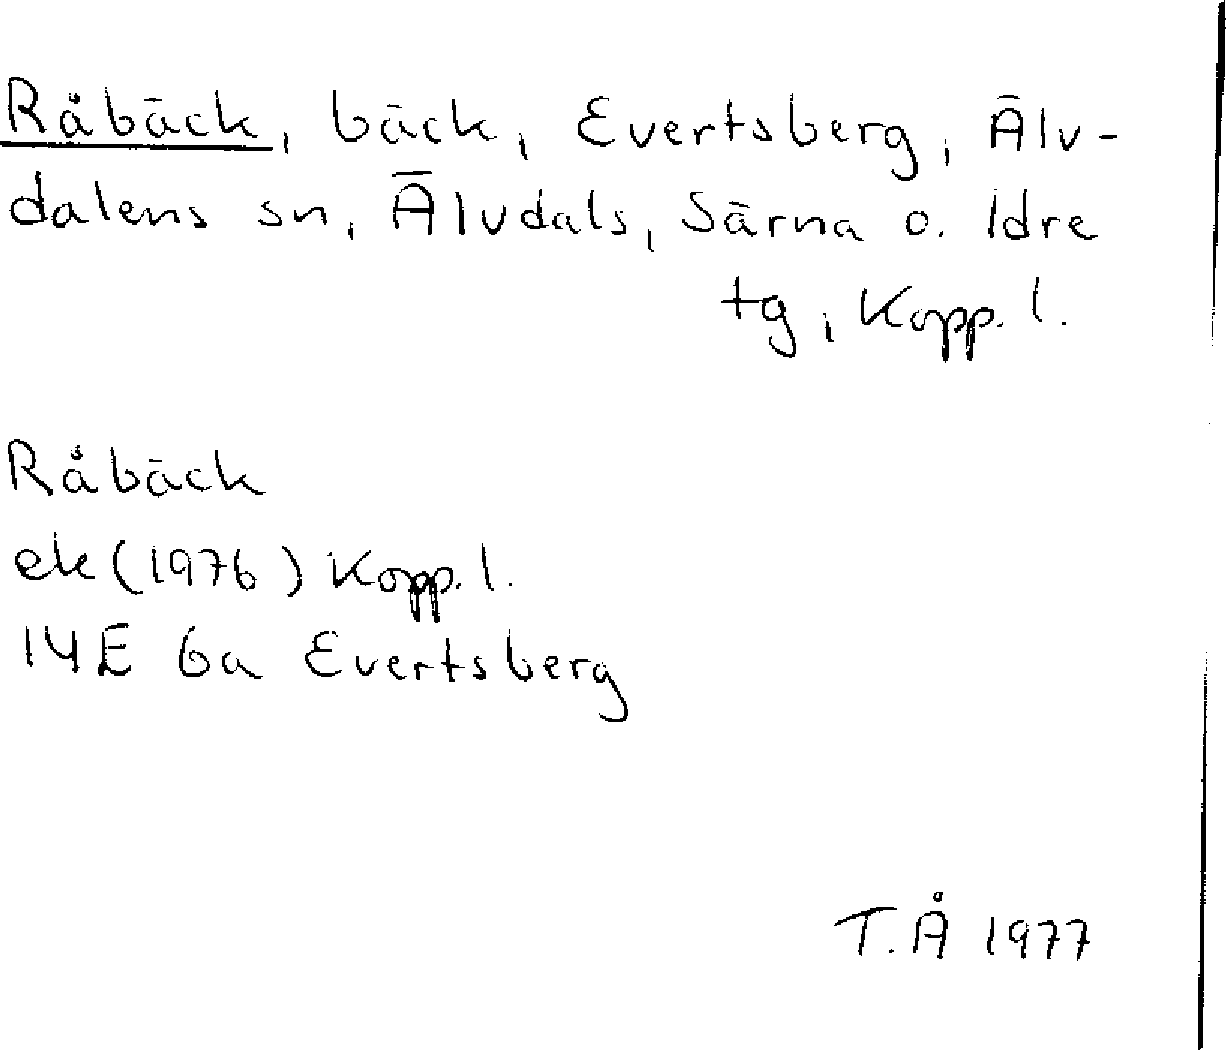 Råbäck, bäck, Evertsberg, Älv-
dalens sn, Älvdals, Särna o. Idre
tg, Kopp. l.
Råbäck
ek (1976) Kopp. l.
14E 6a Evertsberg
T.Å 1977